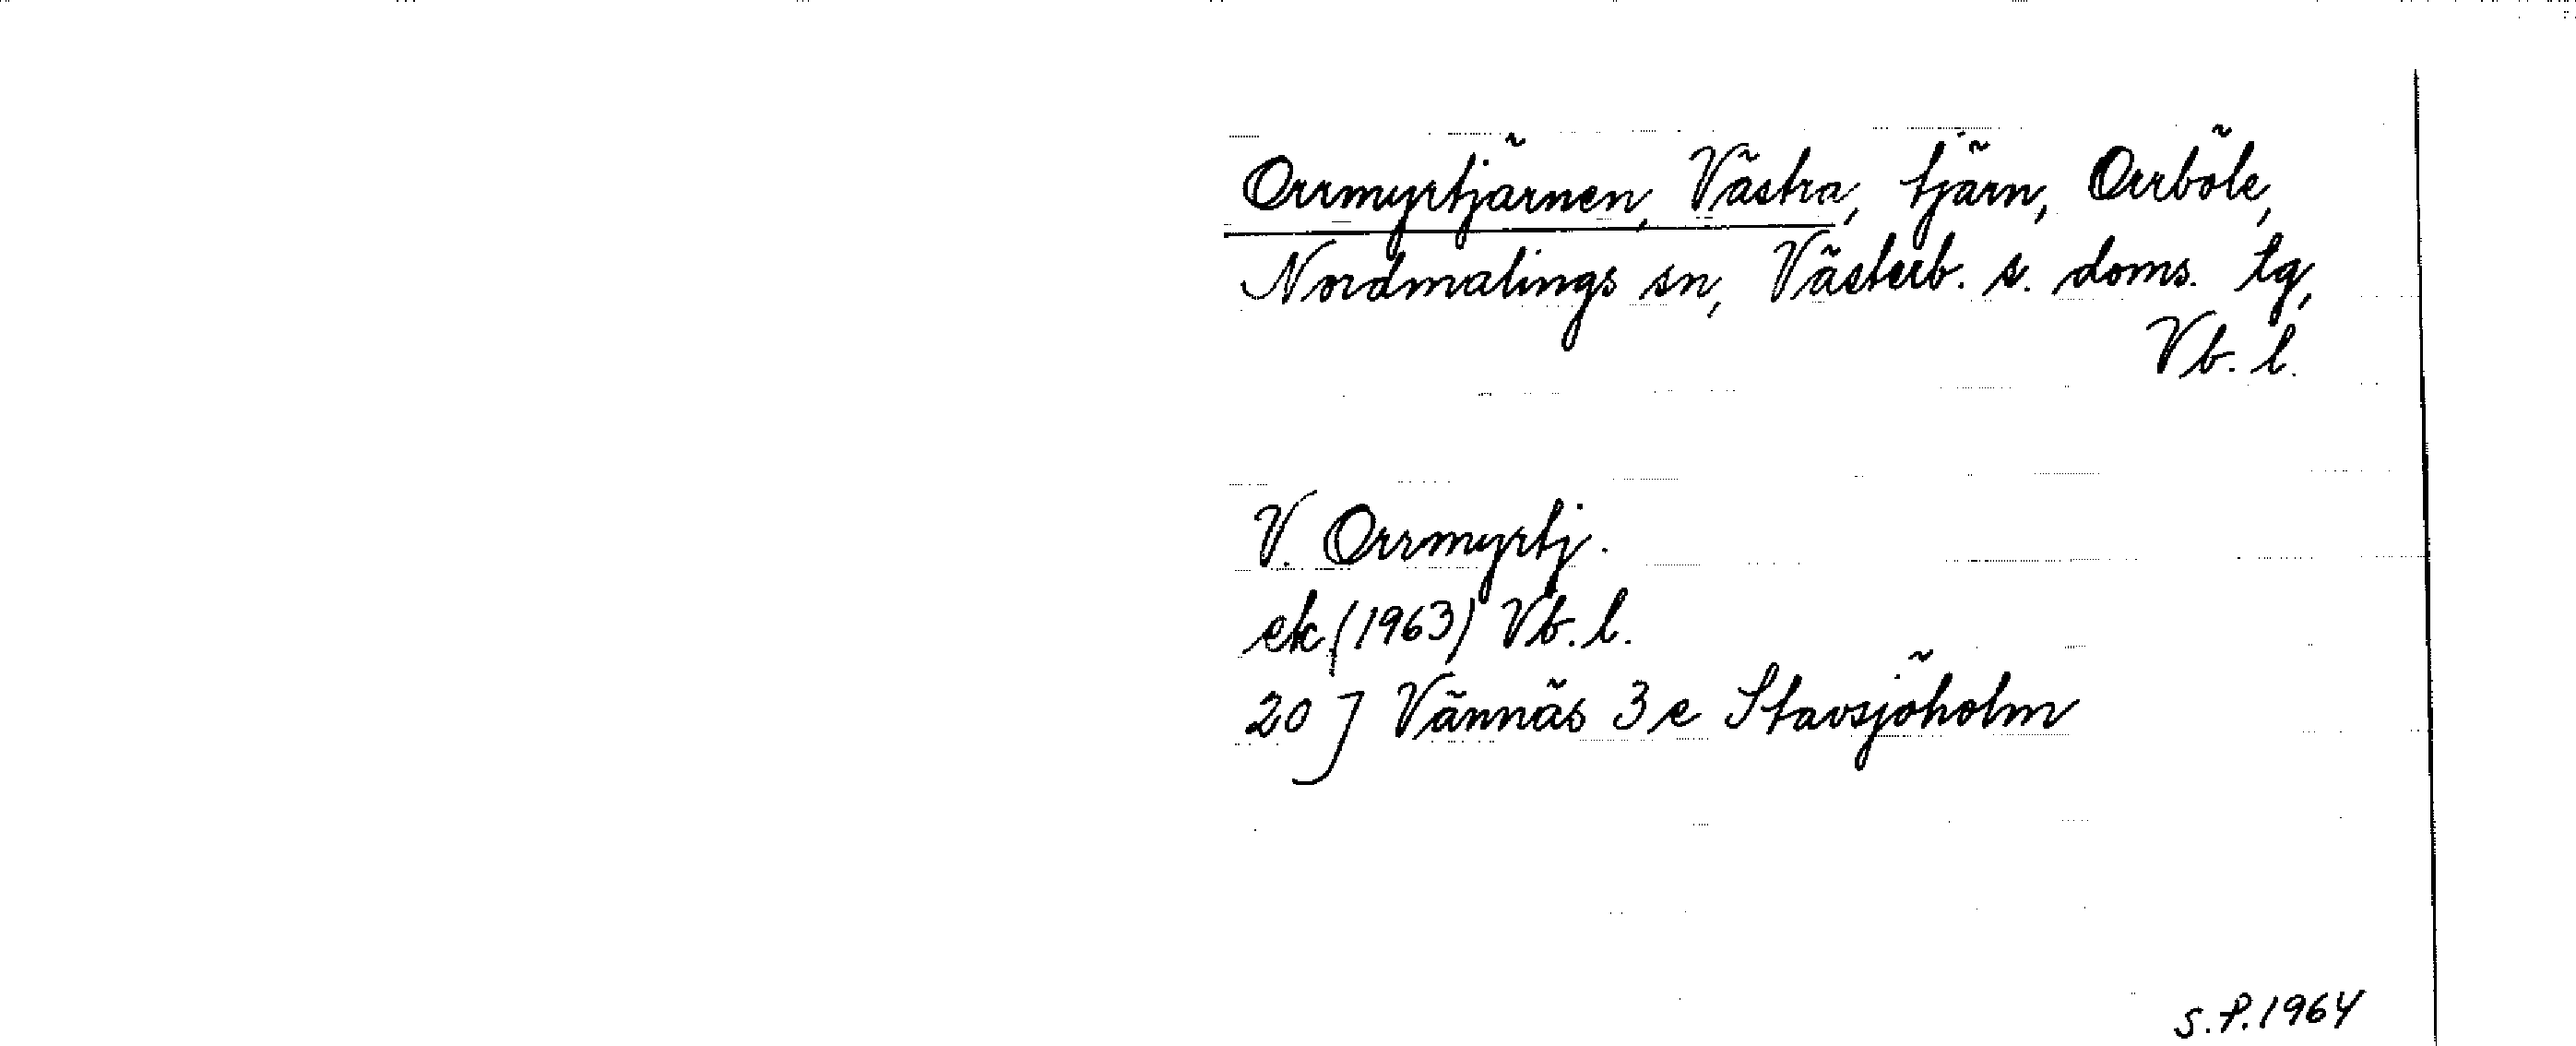 Orrmyrtjärnen, Västra, tjärn, Orrböle,
Nordmalings sn, Västerb. s. doms. tg,
Vb. l.
V. Orrmyrtj.
ek (1963) Vb. l.
20 J Vännäs 3e Stavsjöholm
S.P. 1964